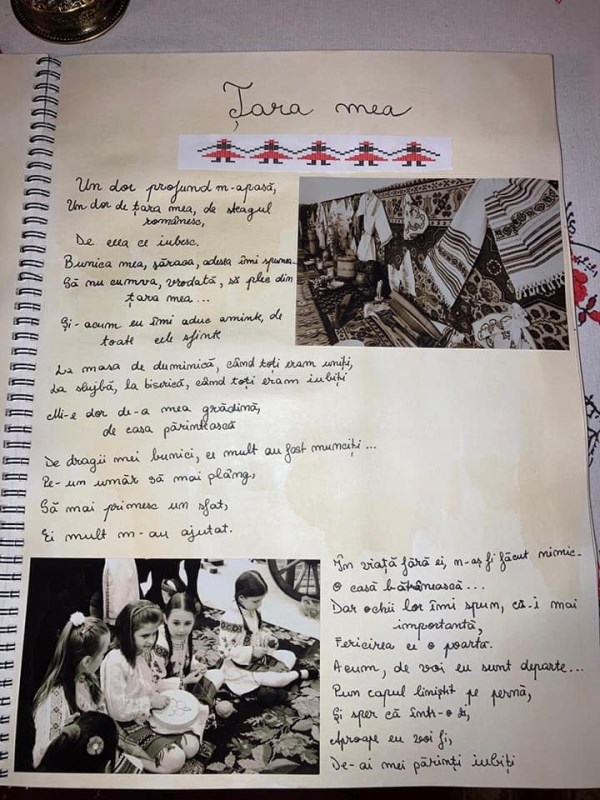 Țara mea
Un dor profund m-apasă,
Un dor de țara mea, de steagul
românesc,
De ceea ce iubesc.
Bunica mea, săraca, adesea îmi spunea..
Să nu cumva, vrodată, să plec din
țara mea...
Și-acum eu îmi aduc aminte, de
toate cele sfinte
La masa de duminică, când toți eram uniți,
La slujbă, la biserică, când toți eram iubiți
Mi-e dor de-a mea grădină,
de casa părintească
De dragii mei bunici, ce mult au fost munciți...
Pe-un umăr să mai plâng,
Să mai primesc un sfat,
Ei mult m-au ajutat.
În viață fără ei, n-aș fi făcut nimic.
O casă bătrânească...
Dar ochii lor îmi spun, că-i mai
importantă,
Fericirea ce o poartă.
Acum, de voi eu sunt departe...
Pun capul liniștit pe pernă,
Și sper că într-o zi,
Aproape eu voi fi,
De-ai mei părinți iubiți